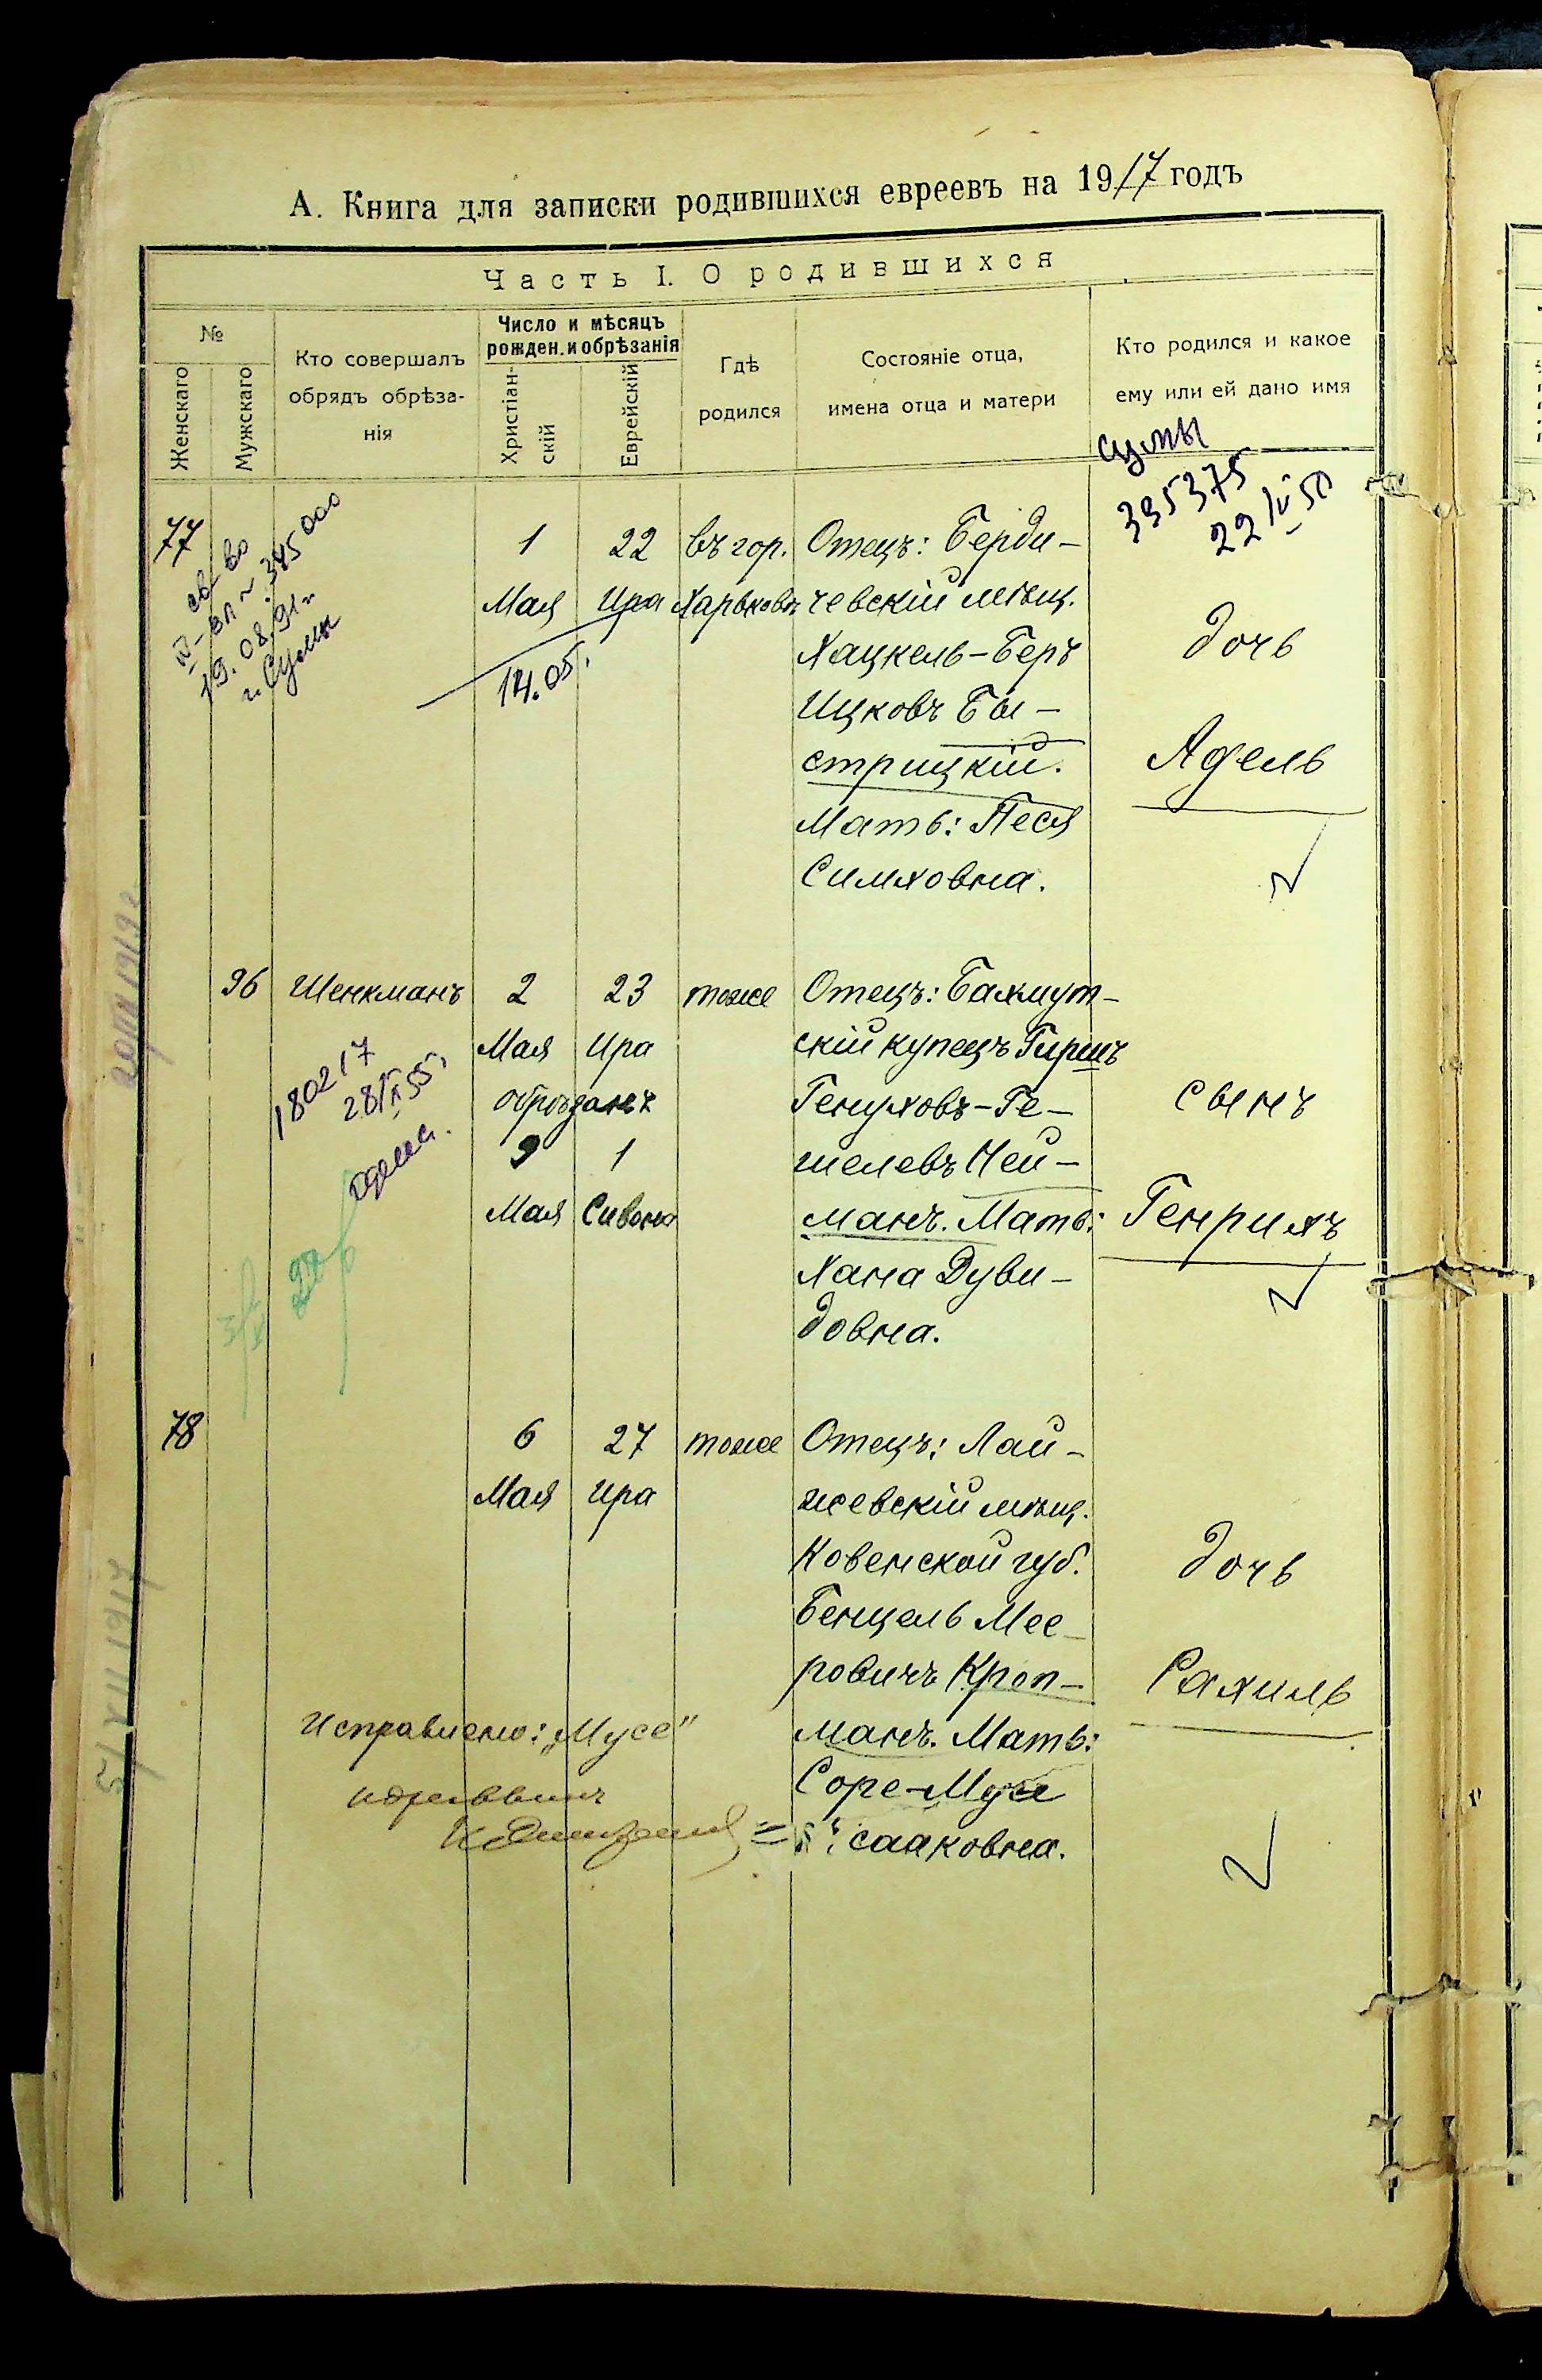 А. Книга для записки родившихся евреевъ на 1917 годъ
Часть I. О родившихся
№
Женскаго
Мужскаго
Кто совершалъ
обрядъ обрѣза-
нія
Число и мѣсяцъ
рожден. и обрѣзанія
Христіан-
скій
Еврейскій
Гдѣ
родился
Состояніе отца,
имена отца и матери
Кто родился и какое
ему или ей дано имя
Сумы
335375
22/IV 50
77
св-во
IV-ВЛ № 345000
19.08.91г
г. Сумы
1
Мая
14.05.
22
Ира
въ гор.
Харьковѣ
Отецъ: Берди-
чевскій мѣщ.
Хацкель-Беръ
Ицковъ Бы-
стрицкій.
Мать: Песя
Симховна.
дочь
Адель
96
Шенкманъ
180217
28/X 55г
2
Мая
обрѣзанъ
9
Мая
23
Ира
1
Сивона
тоже
Отецъ: Бахмут-
скій купецъ Гиршъ
Генуховъ-Ге-
шелевъ Ней-
манъ. Мать:
Хана Дуви-
довна.
сынъ
Генрихъ
78
6
Мая
27
Ира
тоже
Отецъ: Лай-
жевскій мѣщ.
Ковенской губ.
Бенцель Мее-
ровичъ Кроп-
манъ. Мать:
Соре-Мусе
Исааковна.
дочь
Рахиль
Исправлено: „Мусе"
5/XII 1917